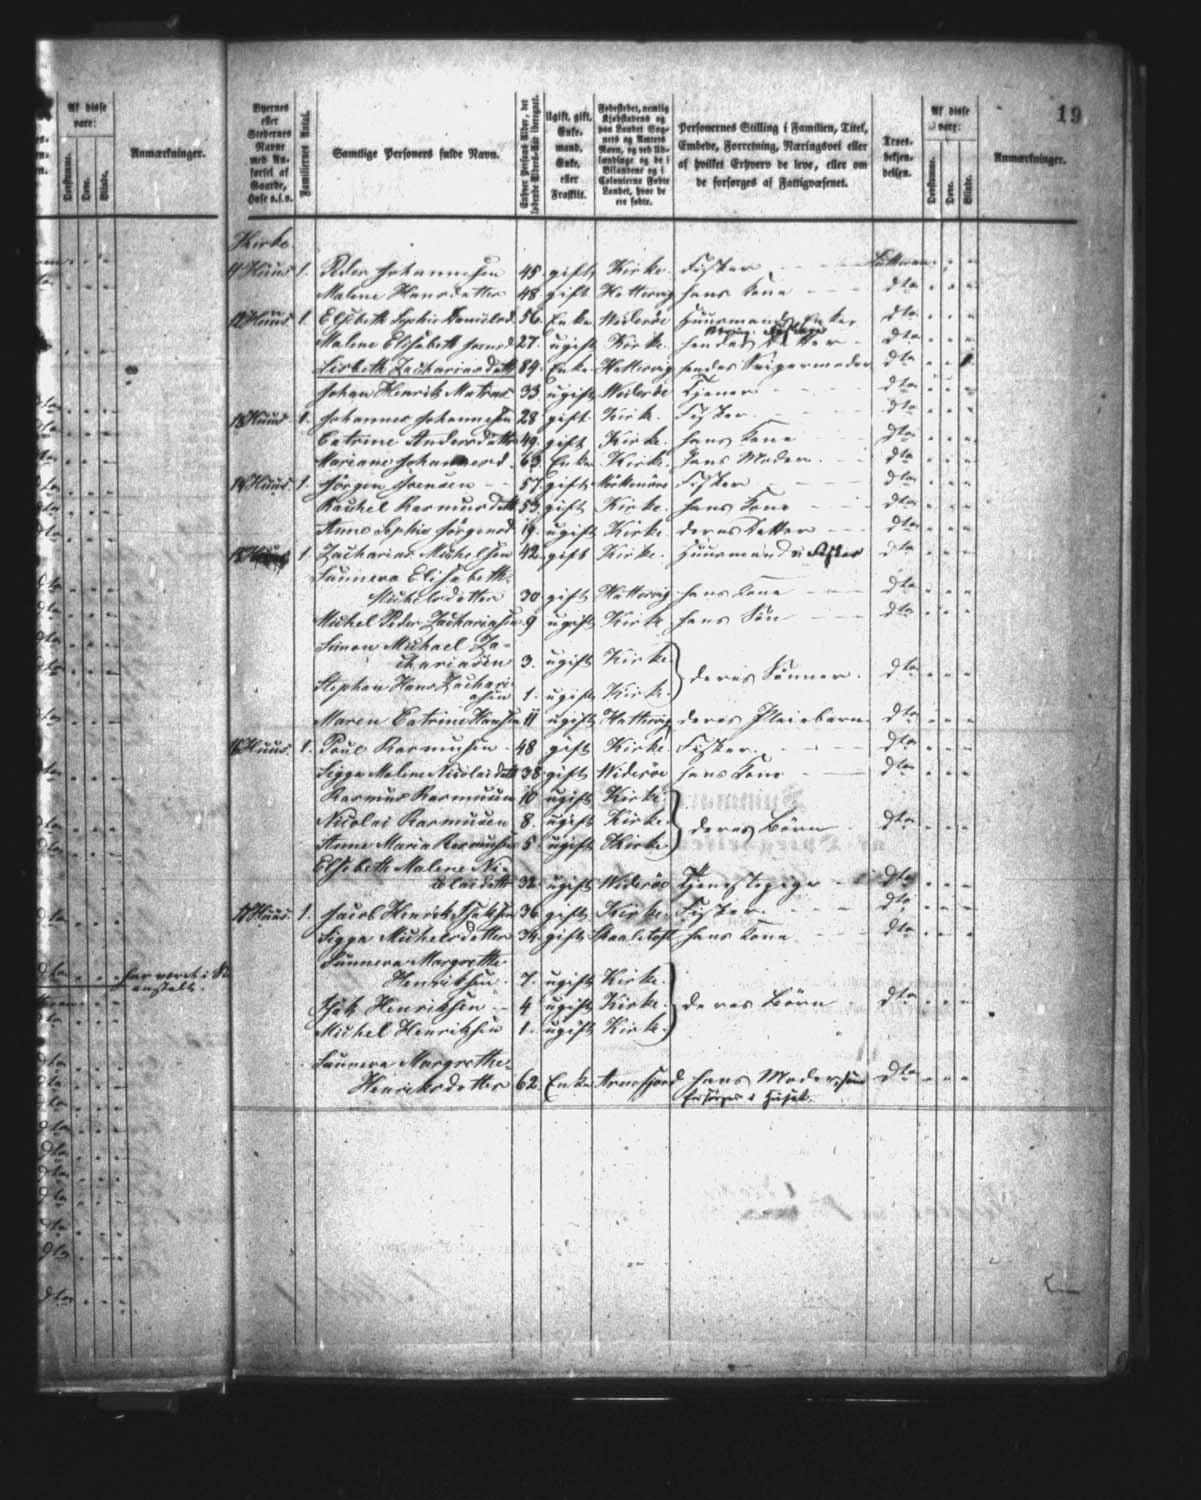 19
Byernes eller Stedernes Navne med Anførsel af Gaarde, Huse o.s.v.
Familiernes Antal.
Samtlige Personers fulde Navn.
Enhver Persons Alder, det løbende Alders-Aar iberegnet.
Ugift, gift, Enkemand, Enke, eller Fraskilt.
Fødestedet, nemlig Kjøbstadens og paa Landet Sognets og Amtets Navn, og ved Udlændinge og de i Bilandene og i Colonierne Fødte Landet, hvor de ere fødte.
Personernes Stilling i Familien, Titel, Embede, Forretning, Næringsvei eller af hvilket Erhverv de leve, eller om de forsørges af Fattigvæsenet.
Troesbekjendelsen.
Af disse vare:
Døvstumme.
Døve.
Blinde.
Anmærkninger.
Kirke.
11 Huus 1. Peder Johannesen 45. gift Kirke. Fisker Lutheran
Malene Hansdatter 48 gift Hattervig hans Kone dto
12 Huus 1. Elsebeth Sophie Danielsd. 56. Enke Wideröe Huusmands Enke dto
Malene Elisabeth 27. ugift Kirke. hendes Datter dto
Lisbeth Zachariasdatt 84. Enke Hattervig hendes Svigermoder dto
Johan Henrik Matras 33 ugift Wideröe Tjener dto
13 Huus 1. Johannes Johannesen 28 gift Kirke. Fisker dto
Catrine Andersdatter 49. gift Kirke. hans Kone dto
Mariane Johannesd. 63. Enke Kirke. hans Moder. dto
14 Huus 1. Jørgen Joensen 57. gift Fisker dto
Rachel Rasmusdatt 53. gift Kirke. hans Kone dto
Anne Sophie Jørgensd 19. ugift Kirke deres Datter dto
15 Huus 1. Zacharias Michelsen 42. gift Kirke. Huusmand & Fisker dto
Sunneva Elisabeth
Michelsdatter 30 gift Hattervig hans Kone dto
Michel Peder Zachariasen 9 ugift Kirke hans Søn dto
Simon Michael Za-
chariasen 3. ugift Kirke
deres Sønner. dto
Stephan Hans Zachari-
asen 1. ugift Kirke.
Maren Catrine Hansen 11 ugift Hattervig deres Pleiebarn dto
16 Huus. 1. Poul Rasmusen 48 gift Kirke. Fisker. dto
Sigga Malene Nicolaidatt 38 gift Wideröe hans Kone dto
Rasmus Rasmusen 10 ugift Kirke.
Nicolai Rasmusen 8. ugift Kirke. deres Börn dto
Anne Maria Rasmusen 5. ugift Kirke
Elsebeth Malene Ni-
colaidatt 32. ugift Wideröe Tjenestepige dto
17 Huus. 1. Jacob Henrik Isaksen 36. gift Kirke. Fisker. dto
Sigga Michelsdatter 34. gift Skaaletoft hans Kone dto
Sunneva Margrethe
Henriksen. 7. ugift Kirke.
Isak Henriksen 4 ugift Kirke. deres Börn dto
Michel Henriksen 1. ugift Kirke.
Sunneva Margrethe
Henriksdatter 62. Enke Arnefjord hans Moder, som dto
forsørges i Huset.
Af disse vare:
Døvstumme.
Døve.
Blinde.
Anmærkninger.
har været i
anstalt.